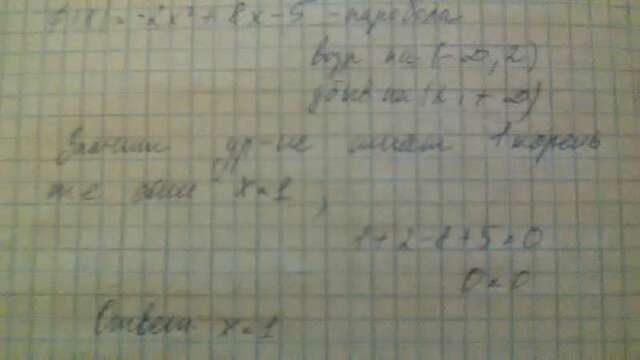 f(x) = -2x² + 8x - 5 - парабола
возр на (-∞, 2)
убыв на (2, +∞)
Значит ур-ие имеет 1 корень
x = 1
1 + 2 - 8 + 5 = 0
0 = 0
Ответ: x = 1